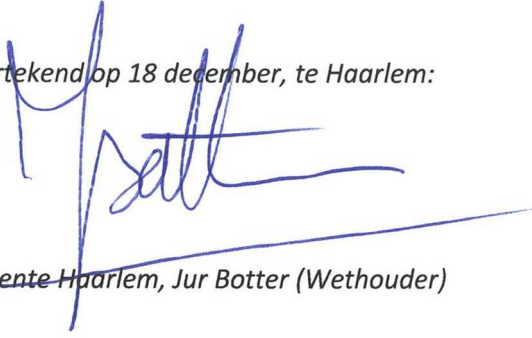 rtekend op 18 december, te Haarlem:
ente Haarlem, Jur Botter (Wethouder)